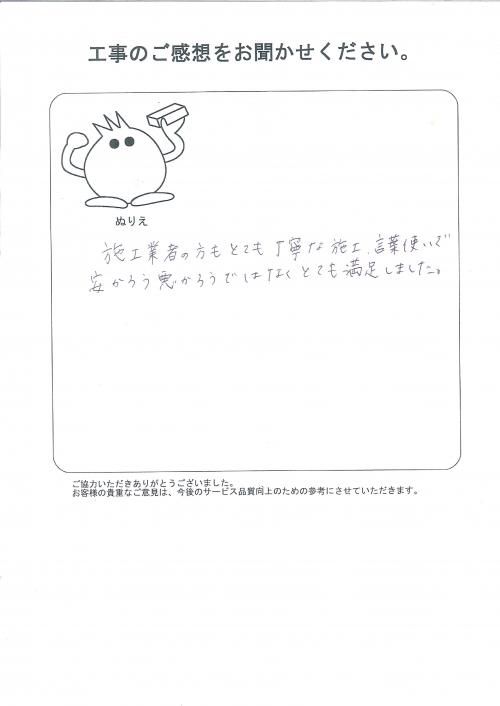 工事のご感想をお聞かせください。
ぬりえ
施工業者の方もとても丁寧な施工、言葉使いで
安かろう悪かろうではなくとても満足しました。
ご協力いただきありがとうございました。
お客様の貴重なご意見は、今後のサービス品質向上のための参考にさせていただきます。